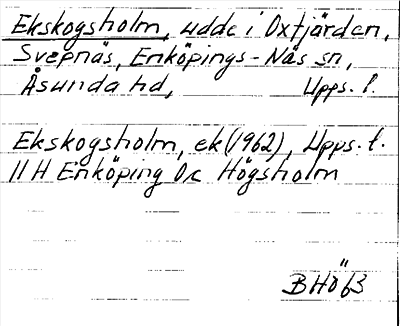 Ekskogsholm, udde i Oxfjärden,
Svepnäs, Enköpings-Näs sn,
Åsunda hd, Upps. l.
Ekskogsholm, ek (1962), Upps. l.
11 H Enköping 0c Högsholm
BHö 63